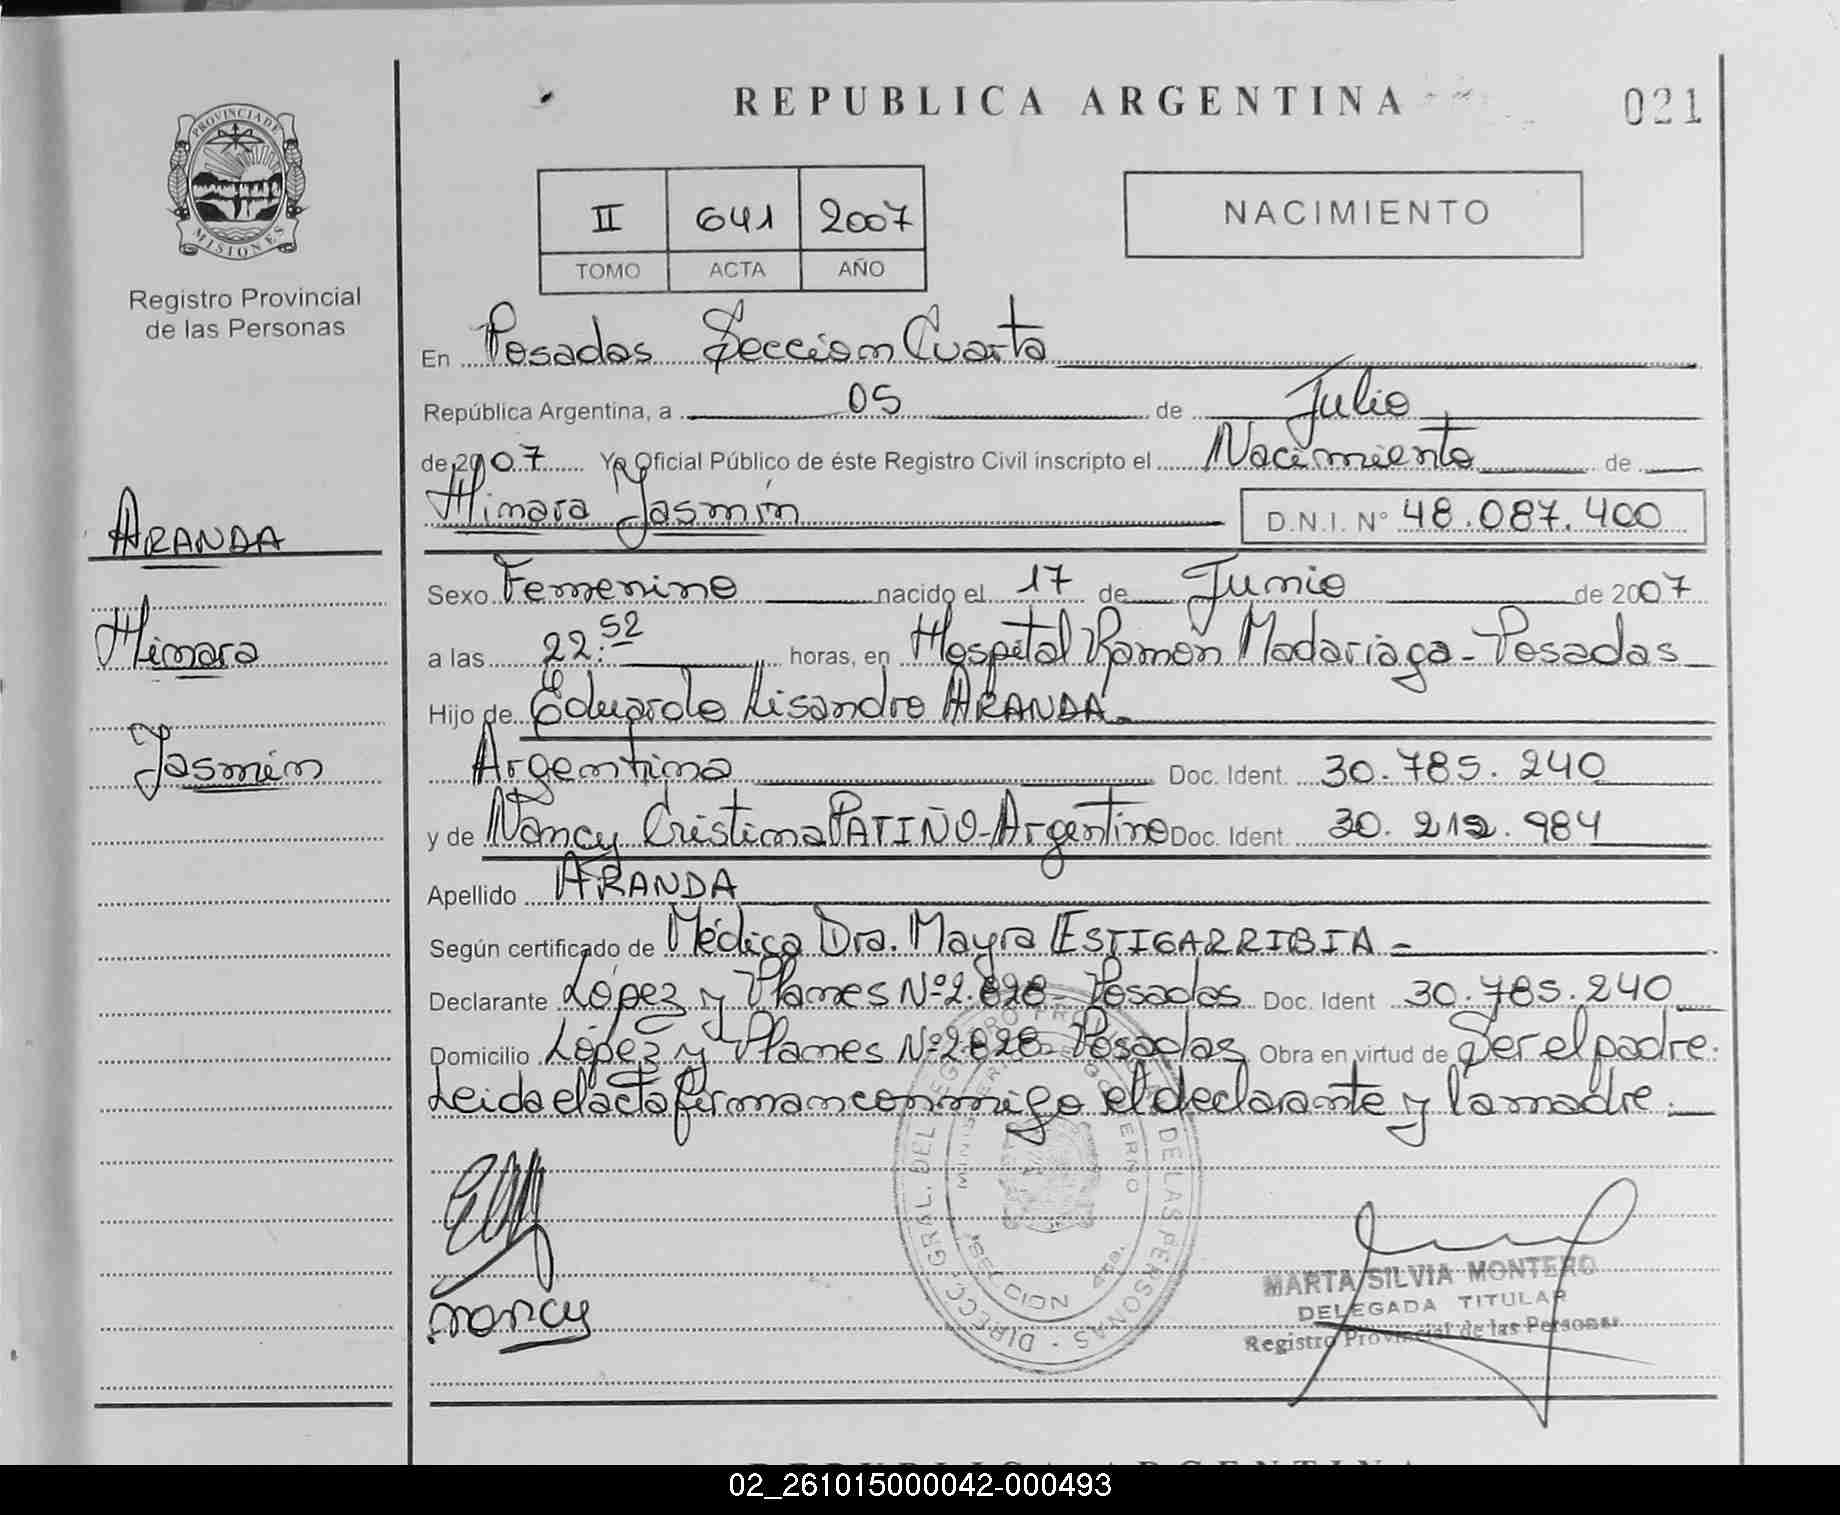 REPUBLICA ARGENTINA
021
PROVINCIA DE
MISIONES
Registro Provincial
de las Personas
II 641 2007
TOMO ACTA AÑO
NACIMIENTO
En Posadas Sección Cuarta
República Argentina, a 05 de Julio
de 2007 Yo Oficial Público de éste Registro Civil inscripto el Nacimiento de
Himara Jasmín D.N.I. N° 48.087.400
ARANDA
Himara
Jasmín
Sexo Femenino nacido el 17 de Junio de 2007
a las 22:52 horas, en Hospital Ramón Madariaga - Posadas
Hijo de Eduardo Lisandro ARANDA
Argentina Doc. Ident. 30.785.240
y de Nancy Cristina PATIÑO - Argentina Doc. Ident. 30.212.984
Apellido ARANDA
Según certificado de Médica Dra. Mayra ESTIGARRIBIA
Declarante López y Planes Nº 2.828 - Posadas Doc. Ident 30.785.240
Domicilio López y Planes Nº 2828 - Posadas Obra en virtud de Ser el padre.
Leida el acta firman conmigo el declarante y la madre.
nancy
DIRECC. GRAL. DEL REGISTRO PROVINCIAL DE LAS PERSONAS
MARTA SILVIA MONTERO
DELEGADA TITULAR
Registro Provincial de las Personas
REPUBLICA ARGENTINA
02_261015000042-000493